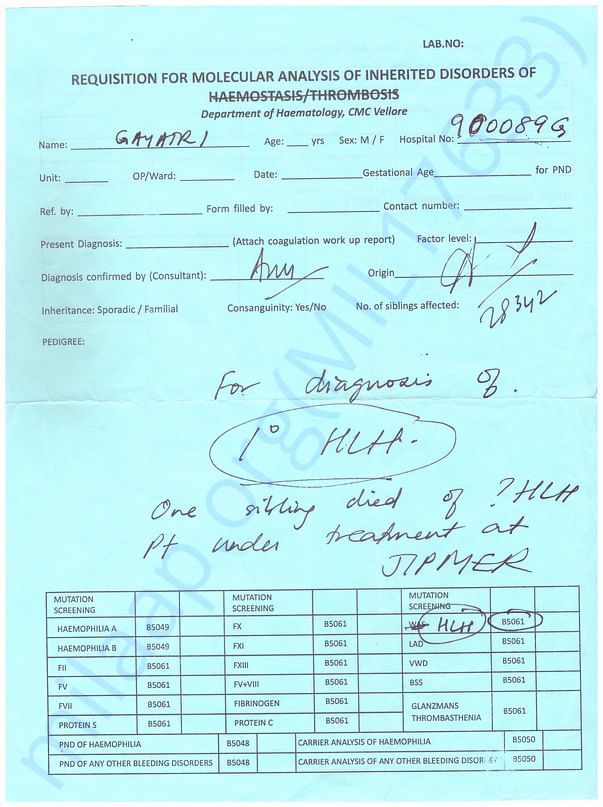 LAB.NO:
REQUISITION FOR MOLECULAR ANALYSIS OF INHERITED DISORDERS OF
HAEMOSTASIS/THROMBOSIS
Department of Haematology, CMC Vellore
Name: GAYATRI Age: ____ yrs Sex: M / F Hospital No: 900089G
Unit: ____ OP/Ward: ____ Date: ____ Gestational Age ____ for PND
Ref. by: ____ Form filled by: ____ Contact number: ____
Present Diagnosis: ____ (Attach coagulation work up report) Factor level: ____
Diagnosis confirmed by (Consultant): ____ Origin ____
Inheritance: Sporadic / Familial Consanguinity: Yes/No No. of siblings affected:
28342
PEDIGREE:
For diagnosis of.
1° HLH.
One sibling died of ? HLH
Pt under treatment at
JIPMER
MUTATION SCREENING MUTATION SCREENING MUTATION SCREENING
HAEMOPHILIA A B5049 FX B5061 HLH B5061
HAEMOPHILIA B B5049 FXI B5061 LAD B5061
FII B5061 FXIII B5061 VWD B5061
FV B5061 FV+VIII B5061 BSS B5061
FVII B5061 FIBRINOGEN B5061 GLANZMANS THROMBASTHENIA B5061
PROTEIN S B5061 PROTEIN C B5061
PND OF HAEMOPHILIA B5048 CARRIER ANALYSIS OF HAEMOPHILIA B5050
PND OF ANY OTHER BLEEDING DISORDERS B5048 CARRIER ANALYSIS OF ANY OTHER BLEEDING DISORDERS B5050
milaap.org(MIL17633)